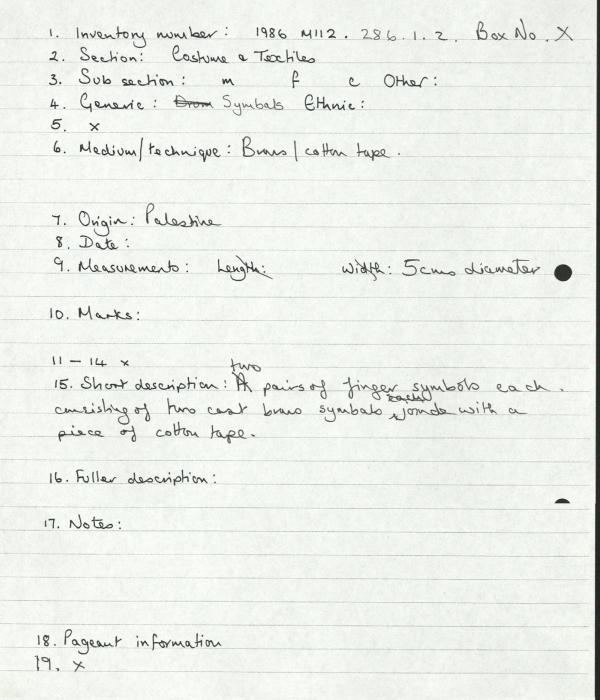 1. Inventory number: 1986 M112. 286.1.2. Box No. X
2. Section: Costume & Textiles
3. Sub section: m f c Other:
4. Generic: Drum Symbals Ethnic:
5. x
6. Medium/technique: Brass/cotton tape.
7. Origin: Palestine
8. Date:
9. Measurements: Length: width: 5cms diameter
10. Marks:
11 - 14 x
two
15. Short description: A pairs of finger symbols each.
consisting of two cast brass symbals each joinde with a
piece of cotton tape.
16. Fuller description:
17. Notes:
18. Pageant information
19. x